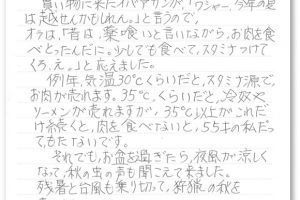 買い物に来たイバアサンが、「ワシャー、今年の夏
は越せんかもしれん。」と言うので、
オラは、「昔は、薬喰いと言いながら、お肉を食
べとったんだに。少しでも食べて、スタミナつけて
くろ、え。」と応えました。
例年、気温30℃くらいだと、スタミナ源で、
お肉が売れます。35℃くらいだと、冷奴や
ソーメンが売れますが、35℃以上がこれだ
け続くと、肉を食べてないと、55才の私だっ
てもたないです。
それでも、お盆を過ぎたら、夜風が涼しく
なって、秋の虫の声も聞こえて来ました。
残暑と台風も乗り切って、狩猟の秋を